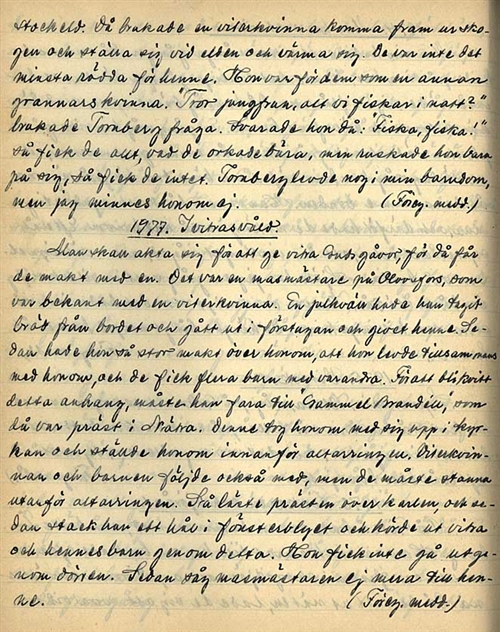 stockeld. Då brukade en viterkvinna komma fram ur sko-
gen och ställa sig vid elden och värma sig. De var inte det
minsta rädda för henne. Hon var för dem som en annan
grannars kvinna. "Tror jungfrun, att vi fiskar i natt?"
brukade Tornberg fråga. Svarade hon då: "Fiska, fiska!"
så fick de allt, vad de orkade bära, men ruskade hon bara
på sig, så fick de intet. Tornberg levde nog i min barndom,
men jag minnes honom ej. (Föreg. medd.)
1977. I vitras våld.
Man skall akta sig för att ge vitra Guds gåvor, för då får
de makt med en. Det var en masmästare på Olovsfors, som
var bekant med en viterkvinna. En julkväll hade han tagit
bröd från bordet och gått ut i förstugan och givet henne. Se-
dan hade hon så stor makt över honom, att hon levde tillsammans
med honom, och de fick flera barn med varandra. För att bli kvitt
detta anhang, måste han fara till "Gammel Brandell," som
då var präst i Nätra. Denne tog honom med sig upp i kyr-
kan och ställde honom innanför altarringen. Viterkvin-
nan och barnen följde också med, men de måste stanna
utanför altarringen. Så läste prästen över karlen, och se-
dan stack han ett hål i fönsterblyet och körde ut vitra
och hennes barn genom detta. Hon fick inte gå ut ge-
nom dörren. Sedan såg masmästaren ej mera till hen-
ne. (Föreg. medd.)